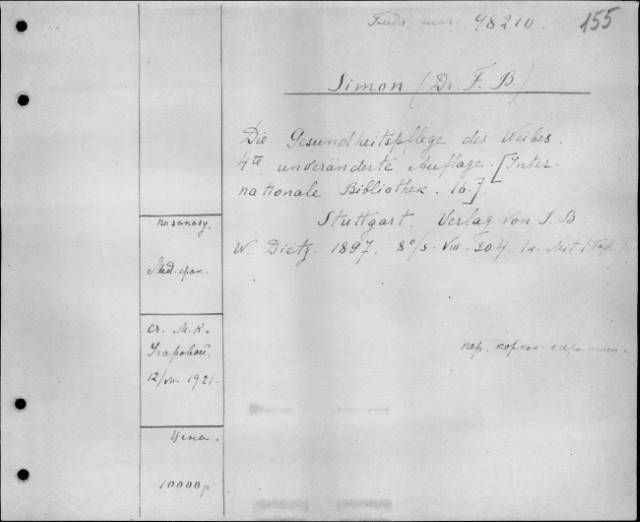 48210. 155
Simon (Dr. F. B.)
Die Gesundheitspflege des Weibes.
4te unveränderte Auflage. [Inter-
nationale Bibliothek. 16.]
Stuttgart. Verlag von J. B
W. Dietz. 1897. 8°/s. VIII. 304
по заказу.
ст. М. К.
12/VII. 1921.
Цена.
10000р